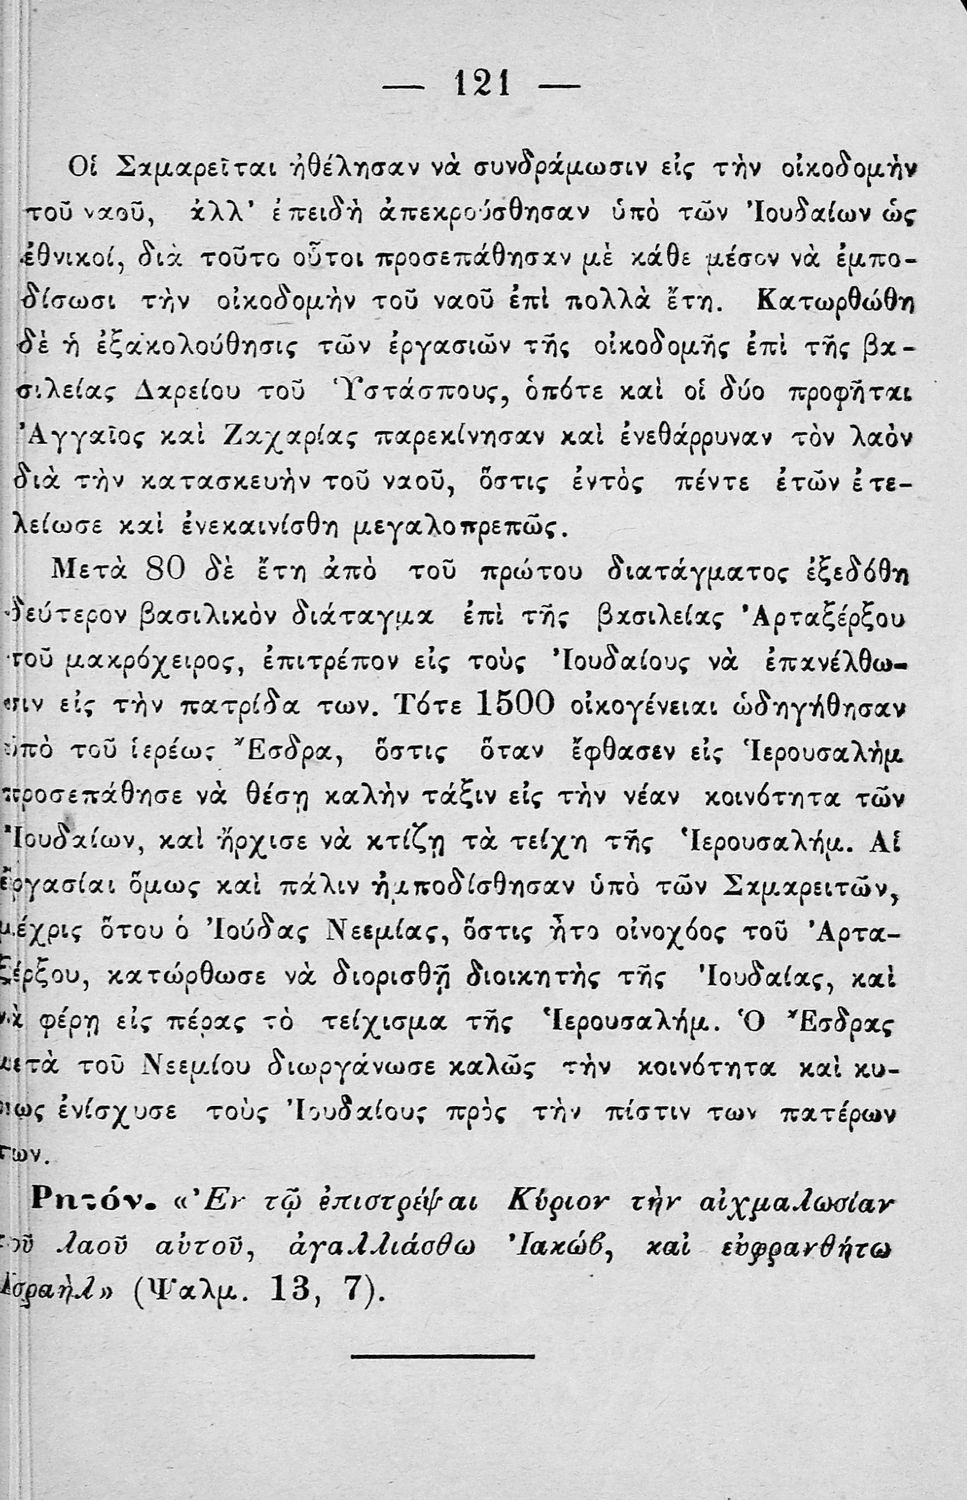 — 121 —
Οἱ Σαμαρεῖται ἠθέλησαν νὰ συνδράμωσιν εἰς τὴν οἰκοδομὴν
τοῦ ναοῦ, ἀλλ' ἐπειδὴ ἀπεκρούσθησαν ὑπὸ τῶν Ἰουδαίων ὡς
ἐθνικοί, διὰ τοῦτο οὗτοι προσεπάθησαν μὲ κάθε μέσον νὰ ἐμπο-
δίσωσι τὴν οἰκοδομὴν τοῦ ναοῦ ἐπὶ πολλὰ ἔτη. Κατωρθώθη
δὲ ἡ ἐξακολούθησις τῶν ἐργασιῶν τῆς οἰκοδομῆς ἐπὶ τῆς βα-
σιλείας Δαρείου τοῦ Ὑστάσπους, ὁπότε καὶ οἱ δύο προφῆται
Ἀγγαῖος καὶ Ζαχαρίας παρεκίνησαν καὶ ἐνεθάρρυναν τὸν λαὸν
διὰ τὴν κατασκευὴν τοῦ ναοῦ, ὅστις ἐντὸς πέντε ἐτῶν ἐτε-
λείωσε καὶ ἐνεκαινίσθη μεγαλοπρεπῶς.
Μετὰ 80 δὲ ἔτη ἀπὸ τοῦ πρώτου διατάγματος ἐξεδόθη
δεύτερον βασιλικὸν διάταγμα ἐπὶ τῆς βασιλείας Ἀρταξέρξου
τοῦ μακρόχειρος, ἐπιτρέπον εἰς τοὺς Ἰουδαίους νὰ ἐπανέλθω-
σιν εἰς τὴν πατρίδα των. Τότε 1500 οἰκογένειαι ὡδηγήθησαν
ὑπὸ τοῦ ἱερέως Ἔσδρα, ὅστις ὅταν ἔφθασεν εἰς Ἱερουσαλὴμ
προσεπάθησε νὰ θέσῃ καλὴν τάξιν εἰς τὴν νέαν κοινότητα τῶν
Ἰουδαίων, καὶ ἤρχισε νὰ κτίζῃ τὰ τείχη τῆς Ἱερουσαλήμ. Αἱ
ἐργασίαι ὅμως καὶ πάλιν ἠμποδίσθησαν ὑπὸ τῶν Σαμαρειτῶν,
μέχρις ὅτου ὁ Ἰούδας Νεεμίας, ὅστις ἦτο οἰνοχόος τοῦ Ἀρτα-
ξέρξου, κατώρθωσε νὰ διορισθῇ διοικητὴς τῆς Ἰουδαίας, καὶ
νὰ φέρῃ εἰς πέρας τὸ τείχισμα τῆς Ἱερουσαλήμ. Ὁ Ἔσδρας
μετὰ τοῦ Νεεμίου διωργάνωσε καλῶς τὴν κοινότητα καὶ κυ-
ρίως ἐνίσχυσε τοὺς Ἰουδαίους πρὸς τὴν πίστιν των πατέρων
των.
Ρητόν. «Ἐν τῷ ἐπιστρέψαι Κύριον τὴν αἰχμαλωσίαν
τοῦ λαοῦ αὐτοῦ, ἀγαλλιάσθω Ἰακώβ, καὶ εὐφρανθήτω
Ἰσραὴλ» (Ψαλμ. 13, 7).